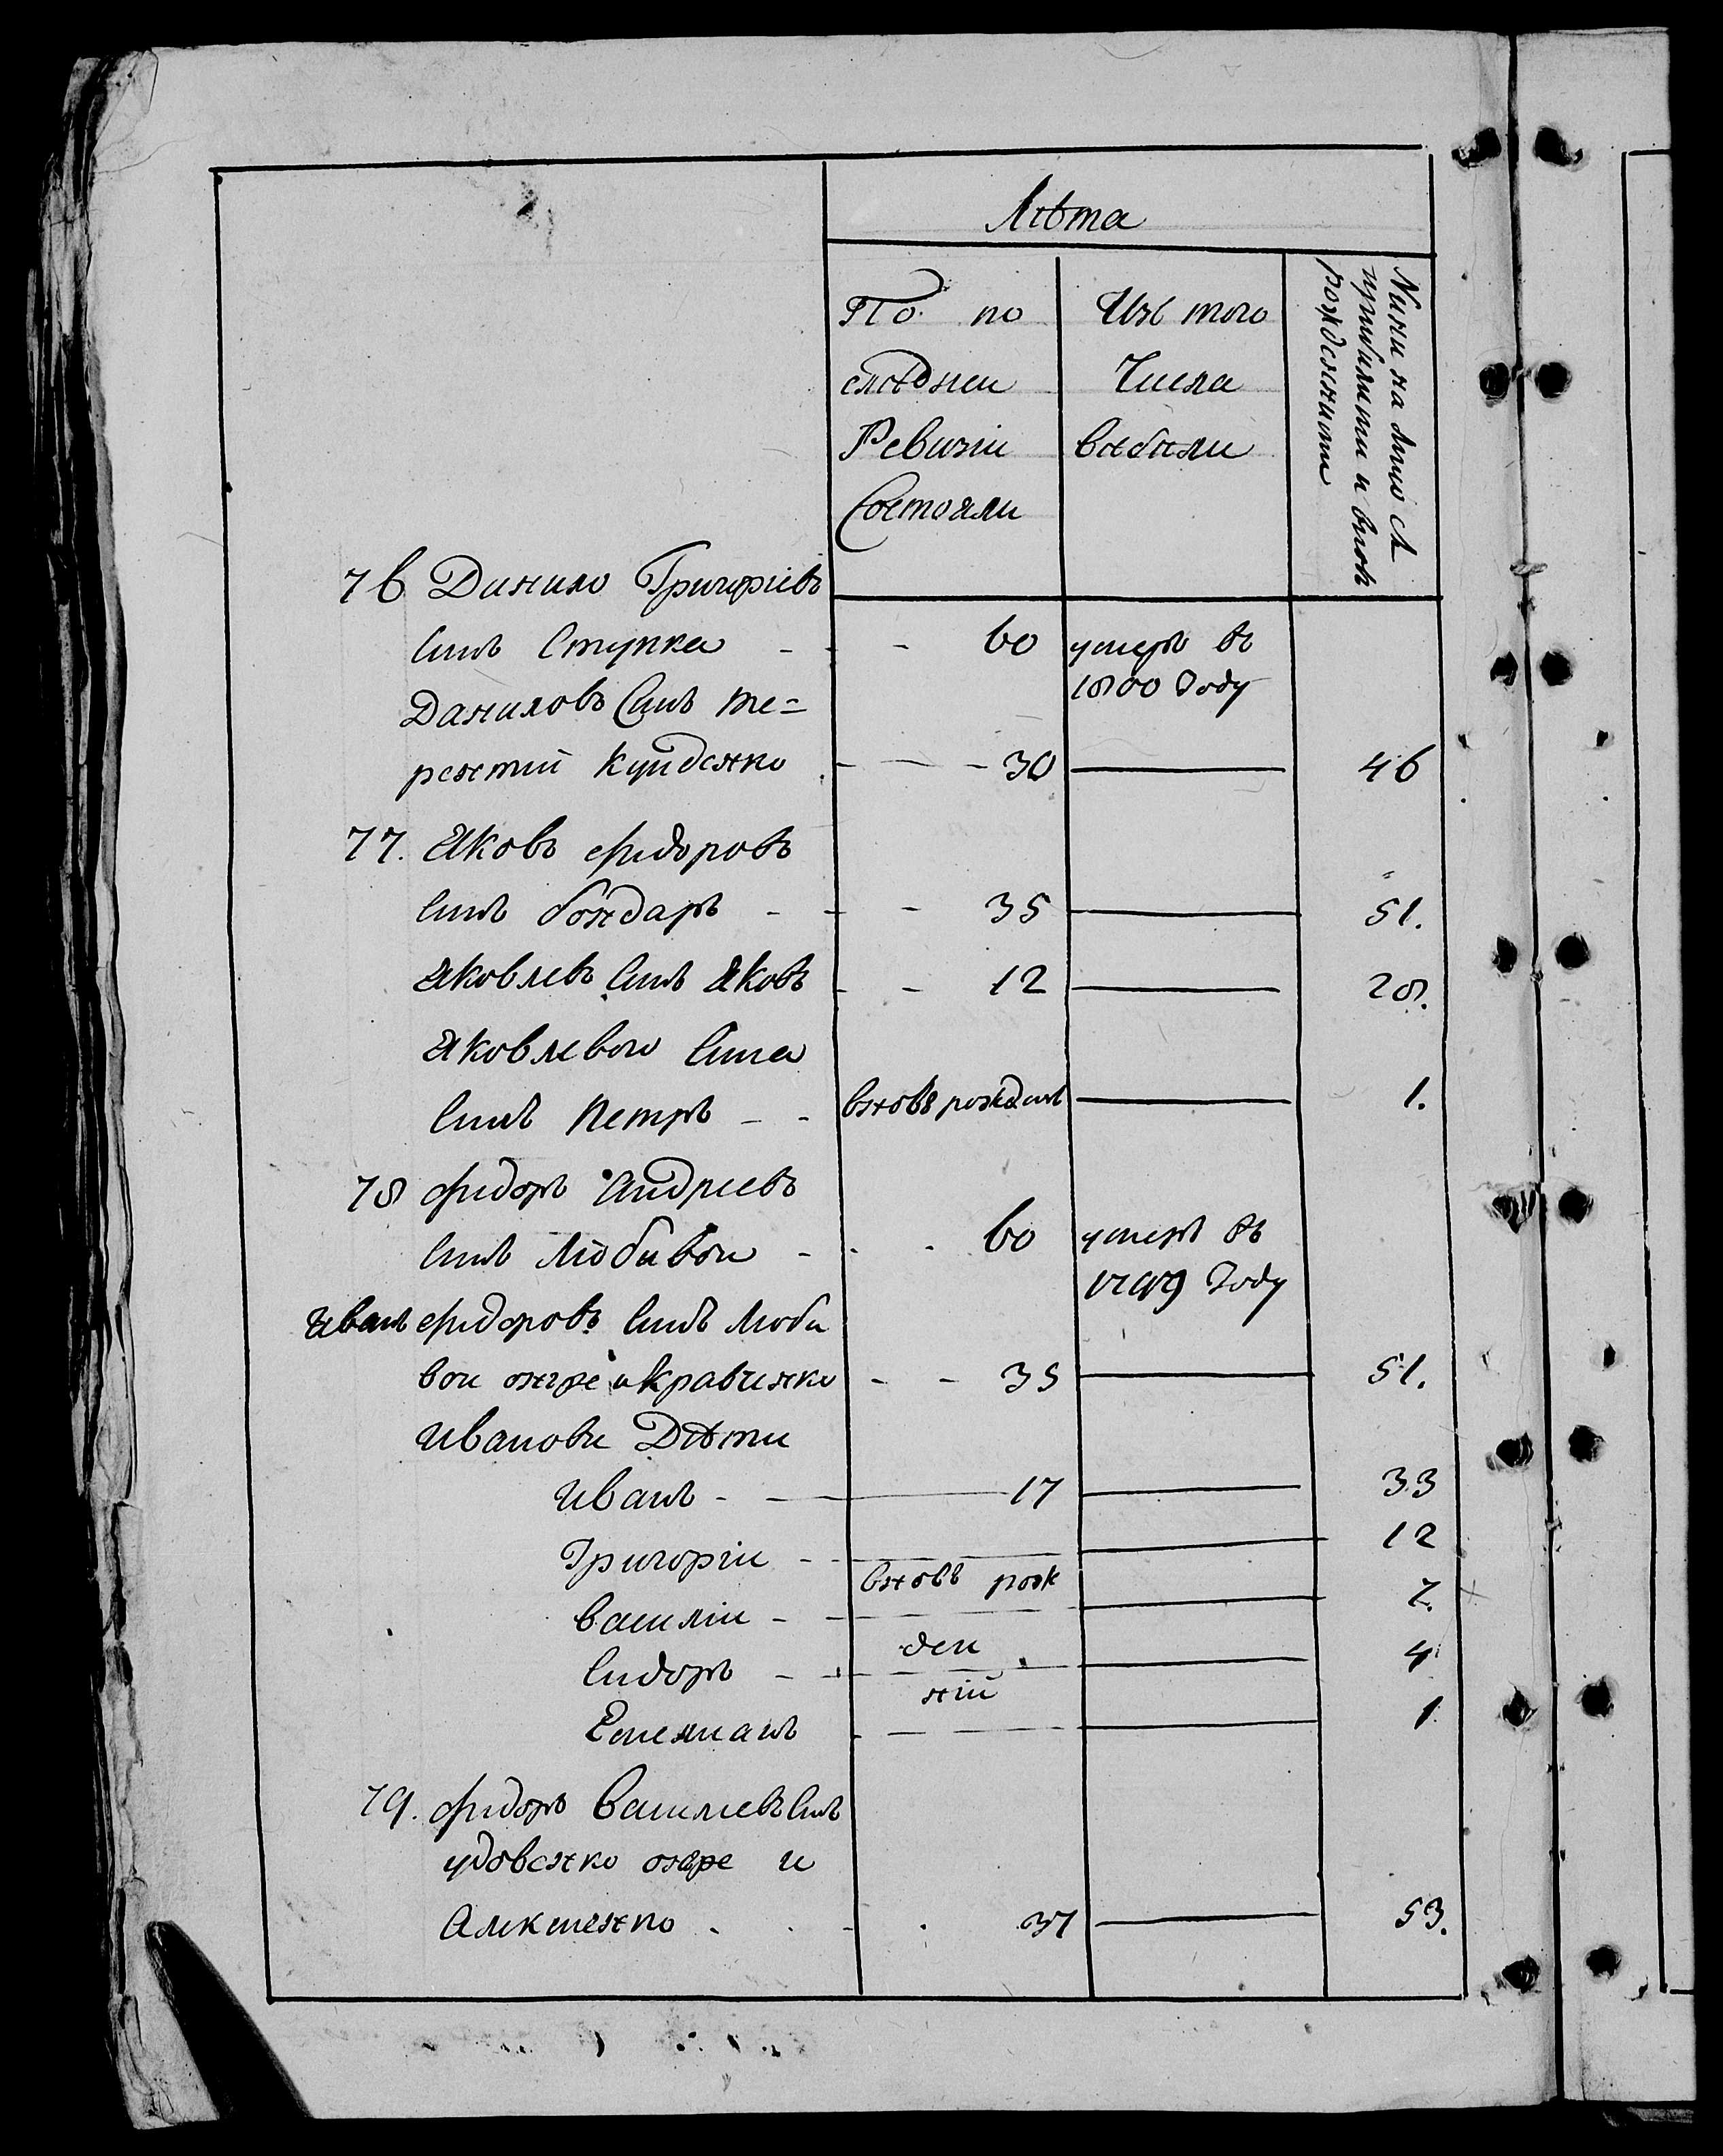 Лѣта
По по
слѣдней
Ревизіи
Состояли
Изъ того
Числа
вибили
Нини на лицо съ
прибилими и вновь
рожденними
76 Данило Григоріевъ
Синъ Ступка - - - 60 умеръ въ
1800 Году
Даниловъ Синъ Те=
рентій Куйденко - - - 30 46
77. Яковъ Фидоровъ
Синъ бондаръ - - - 35 51.
Яковлевъ Синъ Яковъ - - 12 28.
Яковлевого Сина
Синъ Петръ - - вновь рожденъ 1.
78 Фидоръ Андріевъ
Синъ Любивои - - - 60 умеръ въ
1799 Году
Иванъ Фидоровъ Синъ Люби
вои онже и кравченко - - 35 51.
Иванови Дѣти
Иванъ - - 17 33
Григоріи - - 12
вновь рож
Василіи - - 7.
ден
Сидоръ - - 4
ній
Емелианъ - - 1
79. Фидоръ Василиевъ Синъ
удовенко онже и
Алексиенко - - - 37 53.